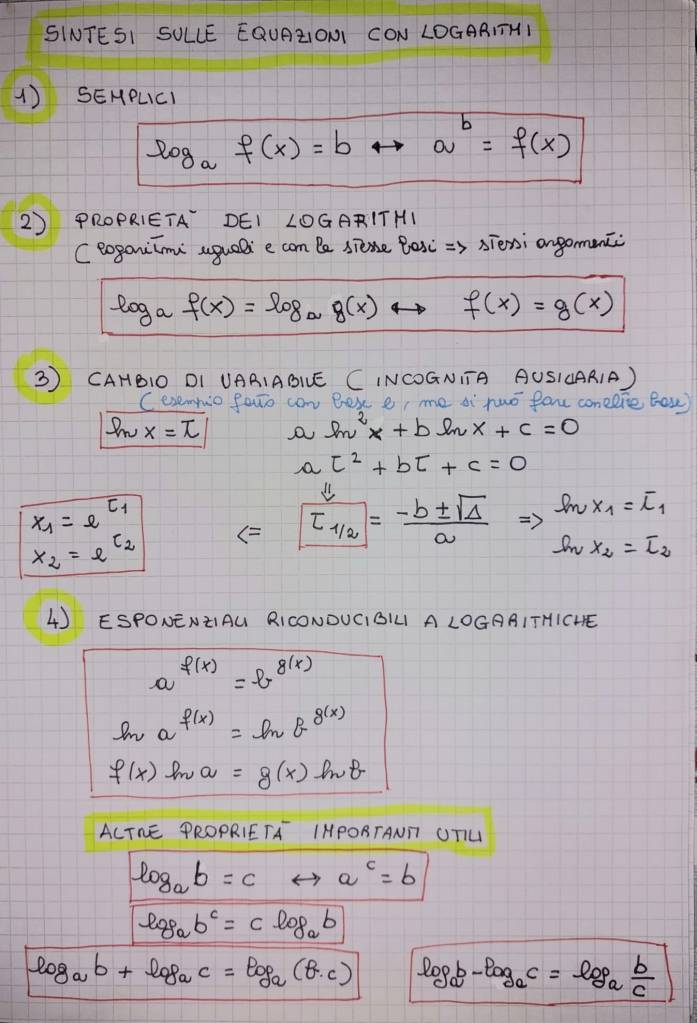 SINTESI SULLE EQUAZIONI CON LOGARITMI
1) SEMPLICI
logₐ f(x) = b ↔ aᵇ = f(x)
2) PROPRIETÀ DEI LOGARITMI
( logaritmi uguali e con le stesse basi => stessi argomenti
logₐ f(x) = logₐ g(x) ↔ f(x) = g(x)
3) CAMBIO DI VARIABILE ( INCOGNITA AUSILIARIA)
( esempio fatto con base e, ma si può fare con altre base)
ln x = t a ln² x + b ln x + c = 0
a t² + bt + c = 0
⇓
x₁ = e^t₁ <= t₁/₂ = (-b ± √Δ)/a => ln x₁ = t₁
x₂ = e^t₂ ln x₂ = t₂
4) ESPONENZIALI RICONDUCIBILI A LOGARITMICHE
a^f(x) = b^g(x)
ln a^f(x) = ln b^g(x)
f(x) ln a = g(x) ln b
ALTRE PROPRIETÀ IMPORTANTI UTILI
logₐ b = c ↔ a^c = b
logₐ b^c = c logₐ b
logₐ b + logₐ c = logₐ (b·c) logₐ b - logₐ c = logₐ b/c